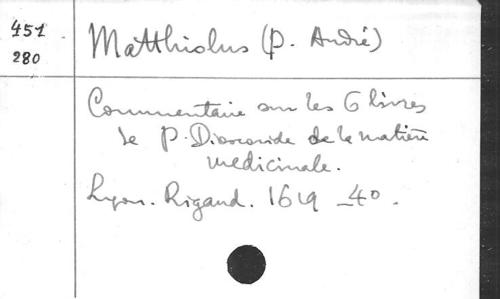 451
280
Matthiolus (P. André)
Commentaire sur les 6 livres
de P. Dioscoride de la matière
medicinale.
Lyon. Rigaud. 1619 _4º.